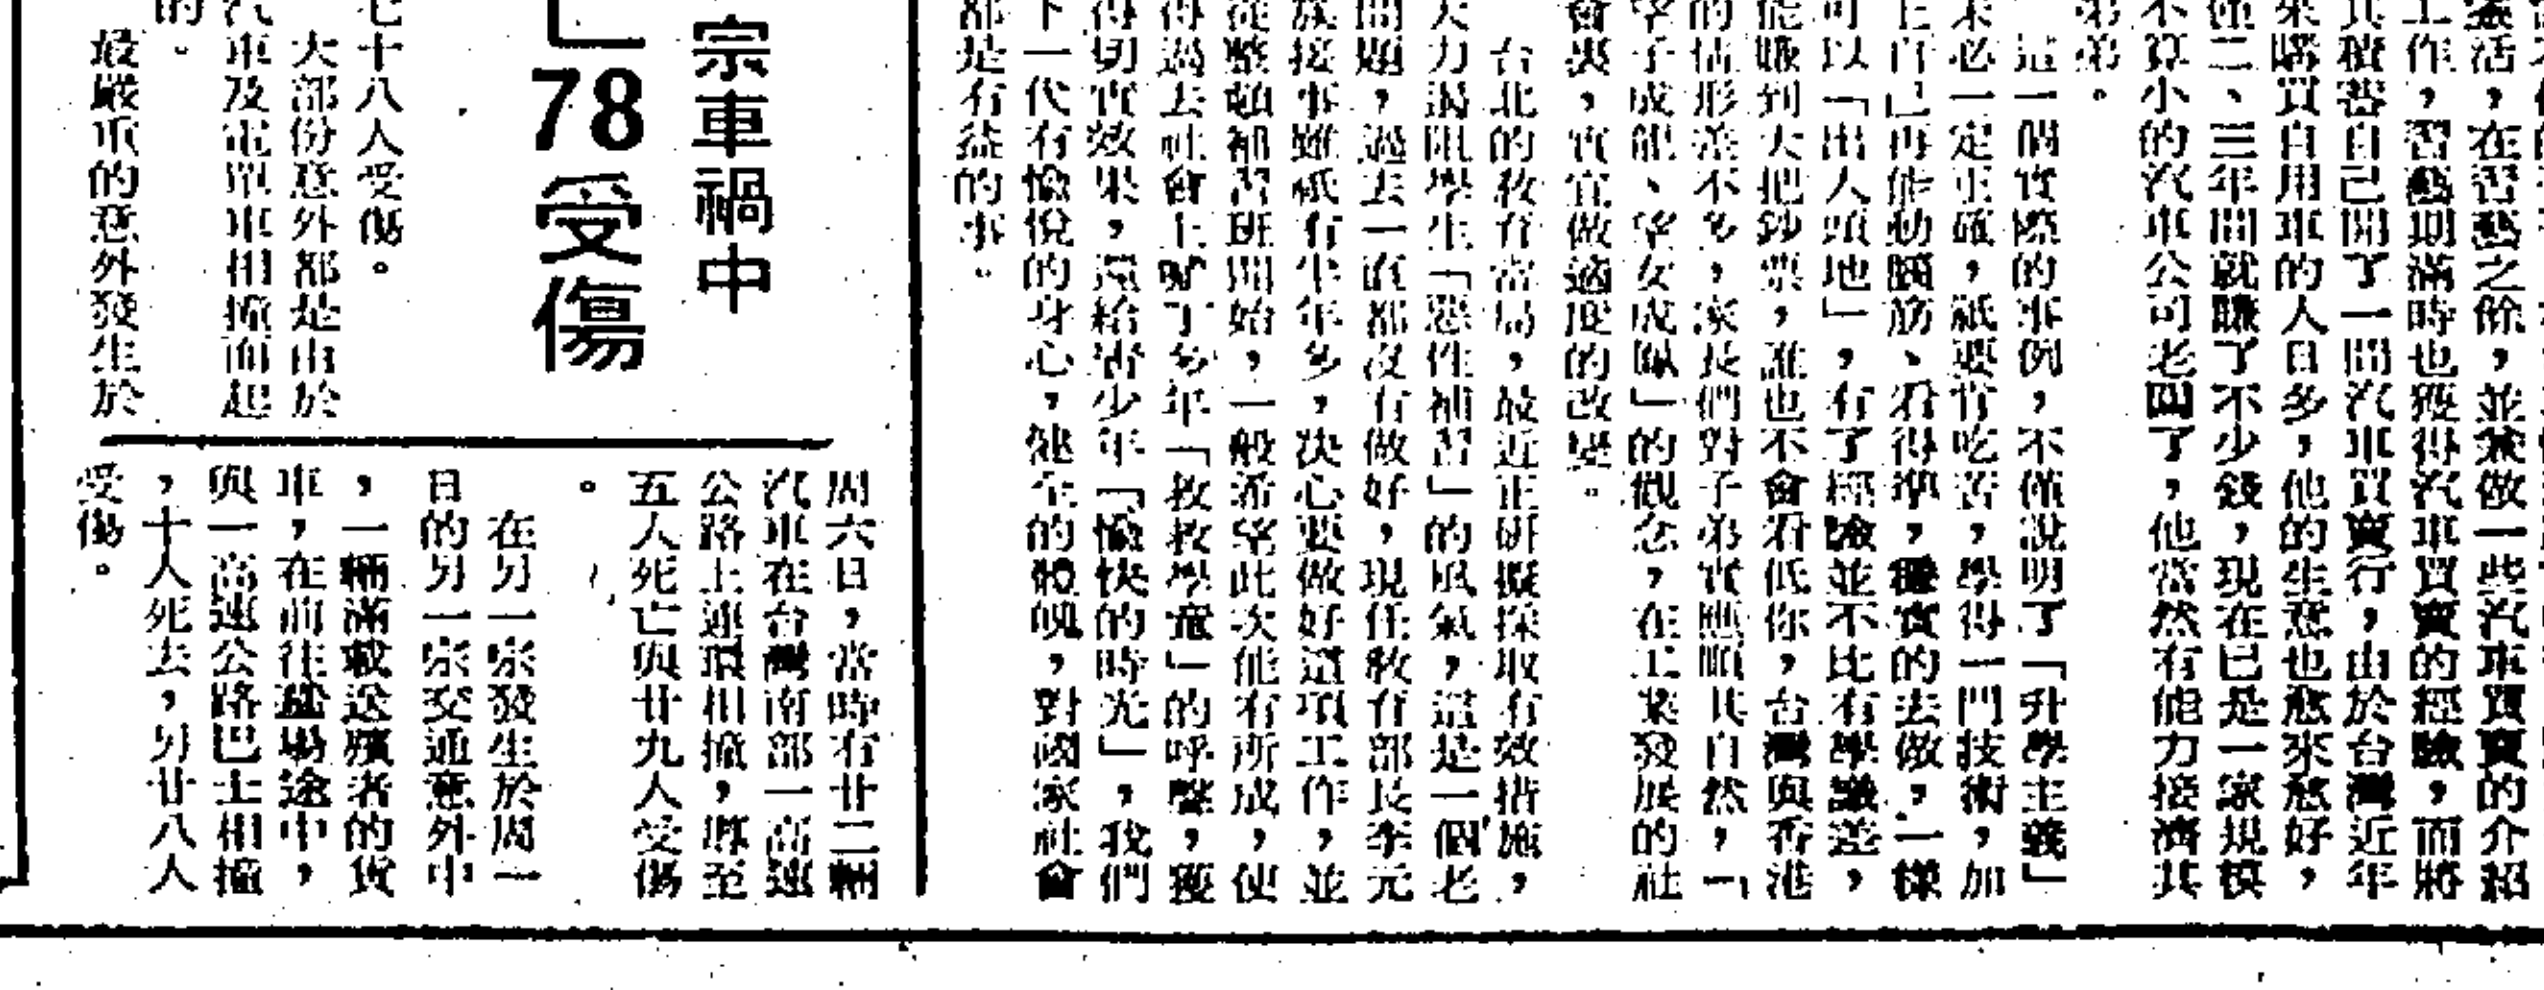 活，在習藝之餘，並兼做一些汽車買賣的介紹
工作，習藝期滿時也獲得汽車買賣的經驗，而將
其積蓄自己開了一間汽車買賣行，由於台灣近年
來購買自用車的人日多，他的生意也愈來愈好，
僅二、三年間就賺了不少錢，現在已是一家規模
不算小的汽車公司老闆了，他當然有能力接濟其
弟弟。
這一個實際的事例，不僅說明了「升學主義」
未必一定正確，祇要肯吃苦，學得一門技術，加
上自己再能動腦筋、看得準，穩實的去做，一樣
可以「出人頭地」，有了經驗並不比有學識差，
能賺到大把鈔票，誰也不會看低你，台灣與香港
的情形差不多，家長們對子弟實應順其自然，「
望子成龍、望女成鳳」的觀念，在工業發展的社
會裏，實宜做適度的改變。
台北的教育當局，最近正研擬採取有效措施，
大力遏阻學生「惡性補習」的風氣，這是一個老
問題，過去一直都沒有做好，現任教育部長李元
族接事雖祇有半年多，決心要做好這項工作，並
從整頓補習班開始，一般希望此次能有所成，使
得過去社會上喊了多年「救救學童」的呼聲，獲
得切實效果，還給青少年「愉快的時光」，我們
下一代有愉悅的身心，健全的體魄，對國家社會
都是有益的事。
宗車禍中
78受傷
七十八人受傷。
大部份意外都是由於
汽車及電單車相撞而起
的。
最嚴重的意外發生於
周六日，當時有廿二輛
汽車在台灣南部一高速
公路上連環相撞，導至
五人死亡與廿九人受傷
。
在另一宗發生於周一
日的另一宗交通意外中
，一輛滿載送殯者的貨
車，在前往墳場途中，
與一高速公路巴士相撞
，十人死去，另廿八人
受傷。